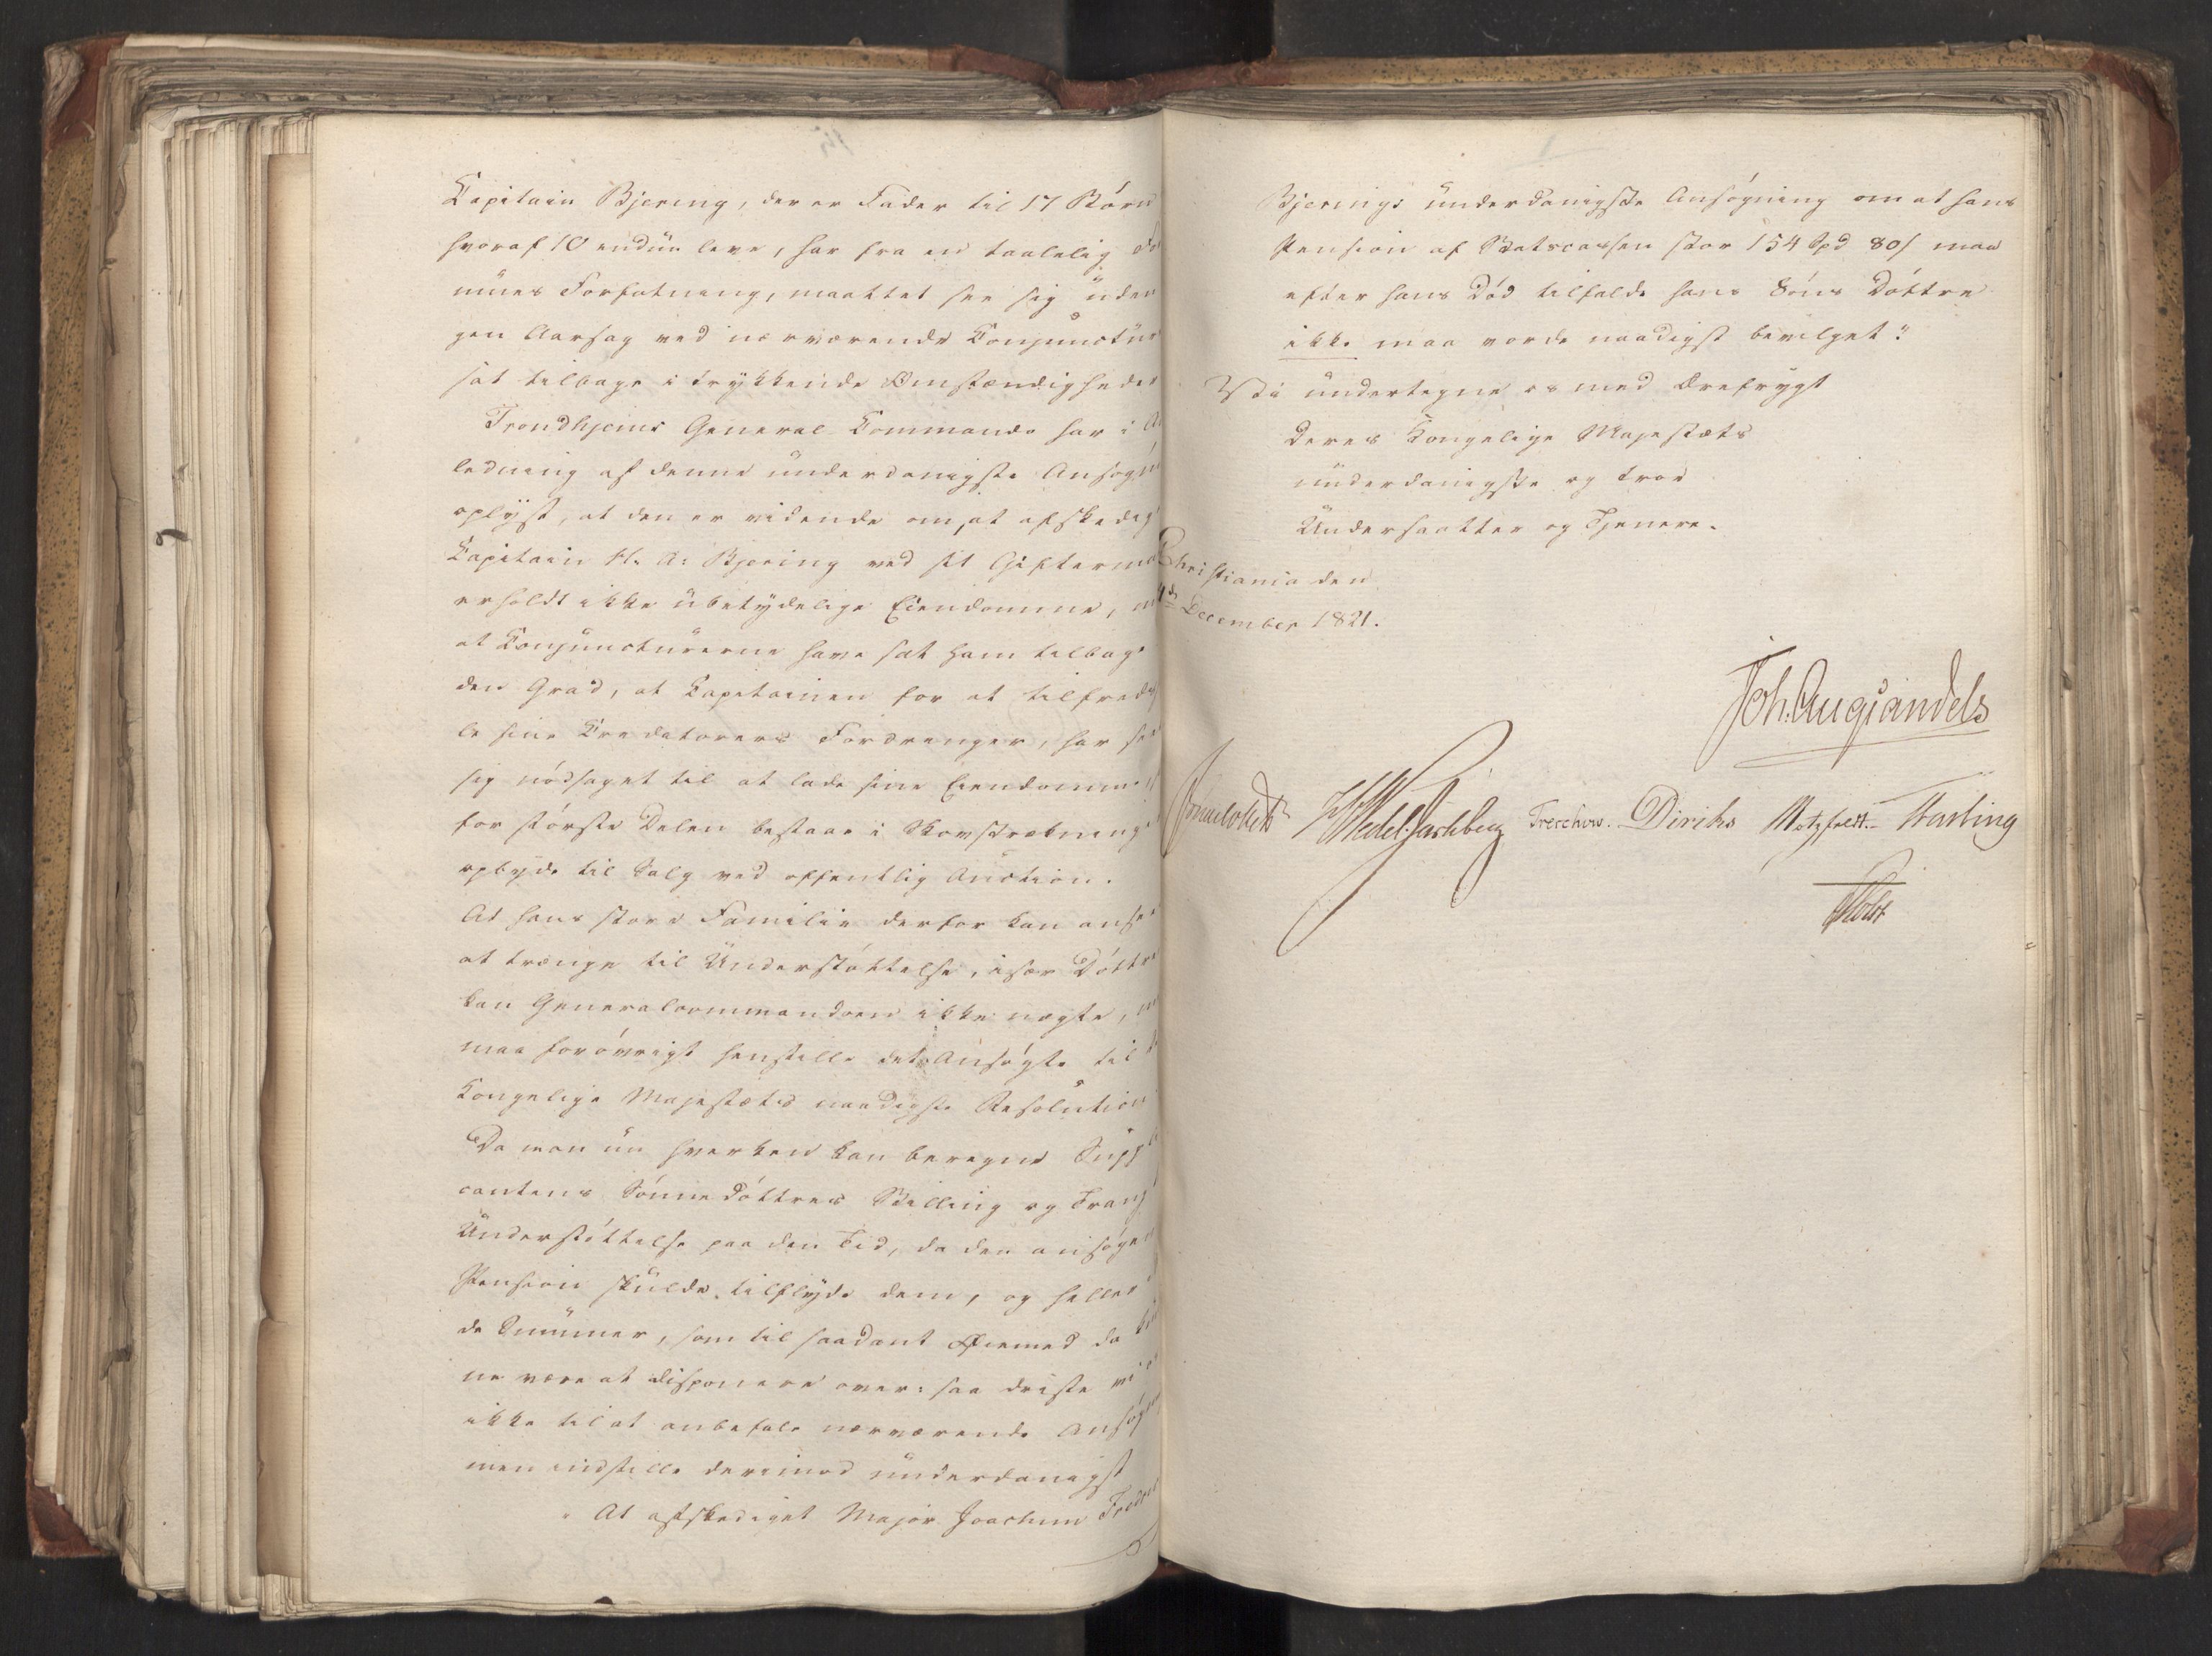 Capitain Bjering, der er Fader til 17 Börn
hvoraf 10 endnu leve, har fra en taalelig
Forfatning, maattet see sig uden
gen Aarsag ved nærværende Conjunctur
sat tilbage i trykkende Omstændigheder
Trondhjems General Commando har i
ledning af denne underdanigste Ansøgn
oplyst, at den er vidende om, at afskediget
Capitain H. A. Bjering ved sit Gifterm
erholdt ikke ubetydelige Eiendomme,
at Conjuncturerne have sat ham tilbage
den Grad, at Capitainen for at tilfreds
le sine Creditorers Fordringer, har seet
sig nødsaget til at lade sine Eiendomme
for største Delen bestaae i Skovstrækninger
opbyde til Salg ved offentlig Auction.
At hans store Familie derfor kan ansees
at trænge til Understøttelse, især Döttre
kan Generalcommandoen ikke nægte,
maa forövrigt henstille det Ansøgte til
Kongelige Majestæts naadigste Resolution
Da man nu hverken kan beregne Suppli
cantens Sönnedöttres Stilling og Trang
Understöttelse paa den Tid, da den ansøgte
Pension skulde tilflyde dem, og heller
de Summer, som til saadant Øiemed da
ne være at disponere over: saa driste vi
ikke til at anbefale nærværende Ansøgn
men indstille derimod underdanigst
"At afskediget Major Joachim Fredrik
Bjerings underdanigste Ansøgning om at hans
Pension af Statscassen stor 154 Spd 80 s maa
efter hans Död tilfalde hans Söns Döttre
ikke maa vorde naadigst bevilget."
Vi undertegne os med Ærefrygt
Deres Kongelige Majestæts
underdanigste og troe
Undersaatter og Tjenere.
Christiania den
December 1821.
Joh. Aug. Sandels
Sommerfeldt HWedel Jarlsberg Treschow. Diriks Motzfeldt Fasting
Holst